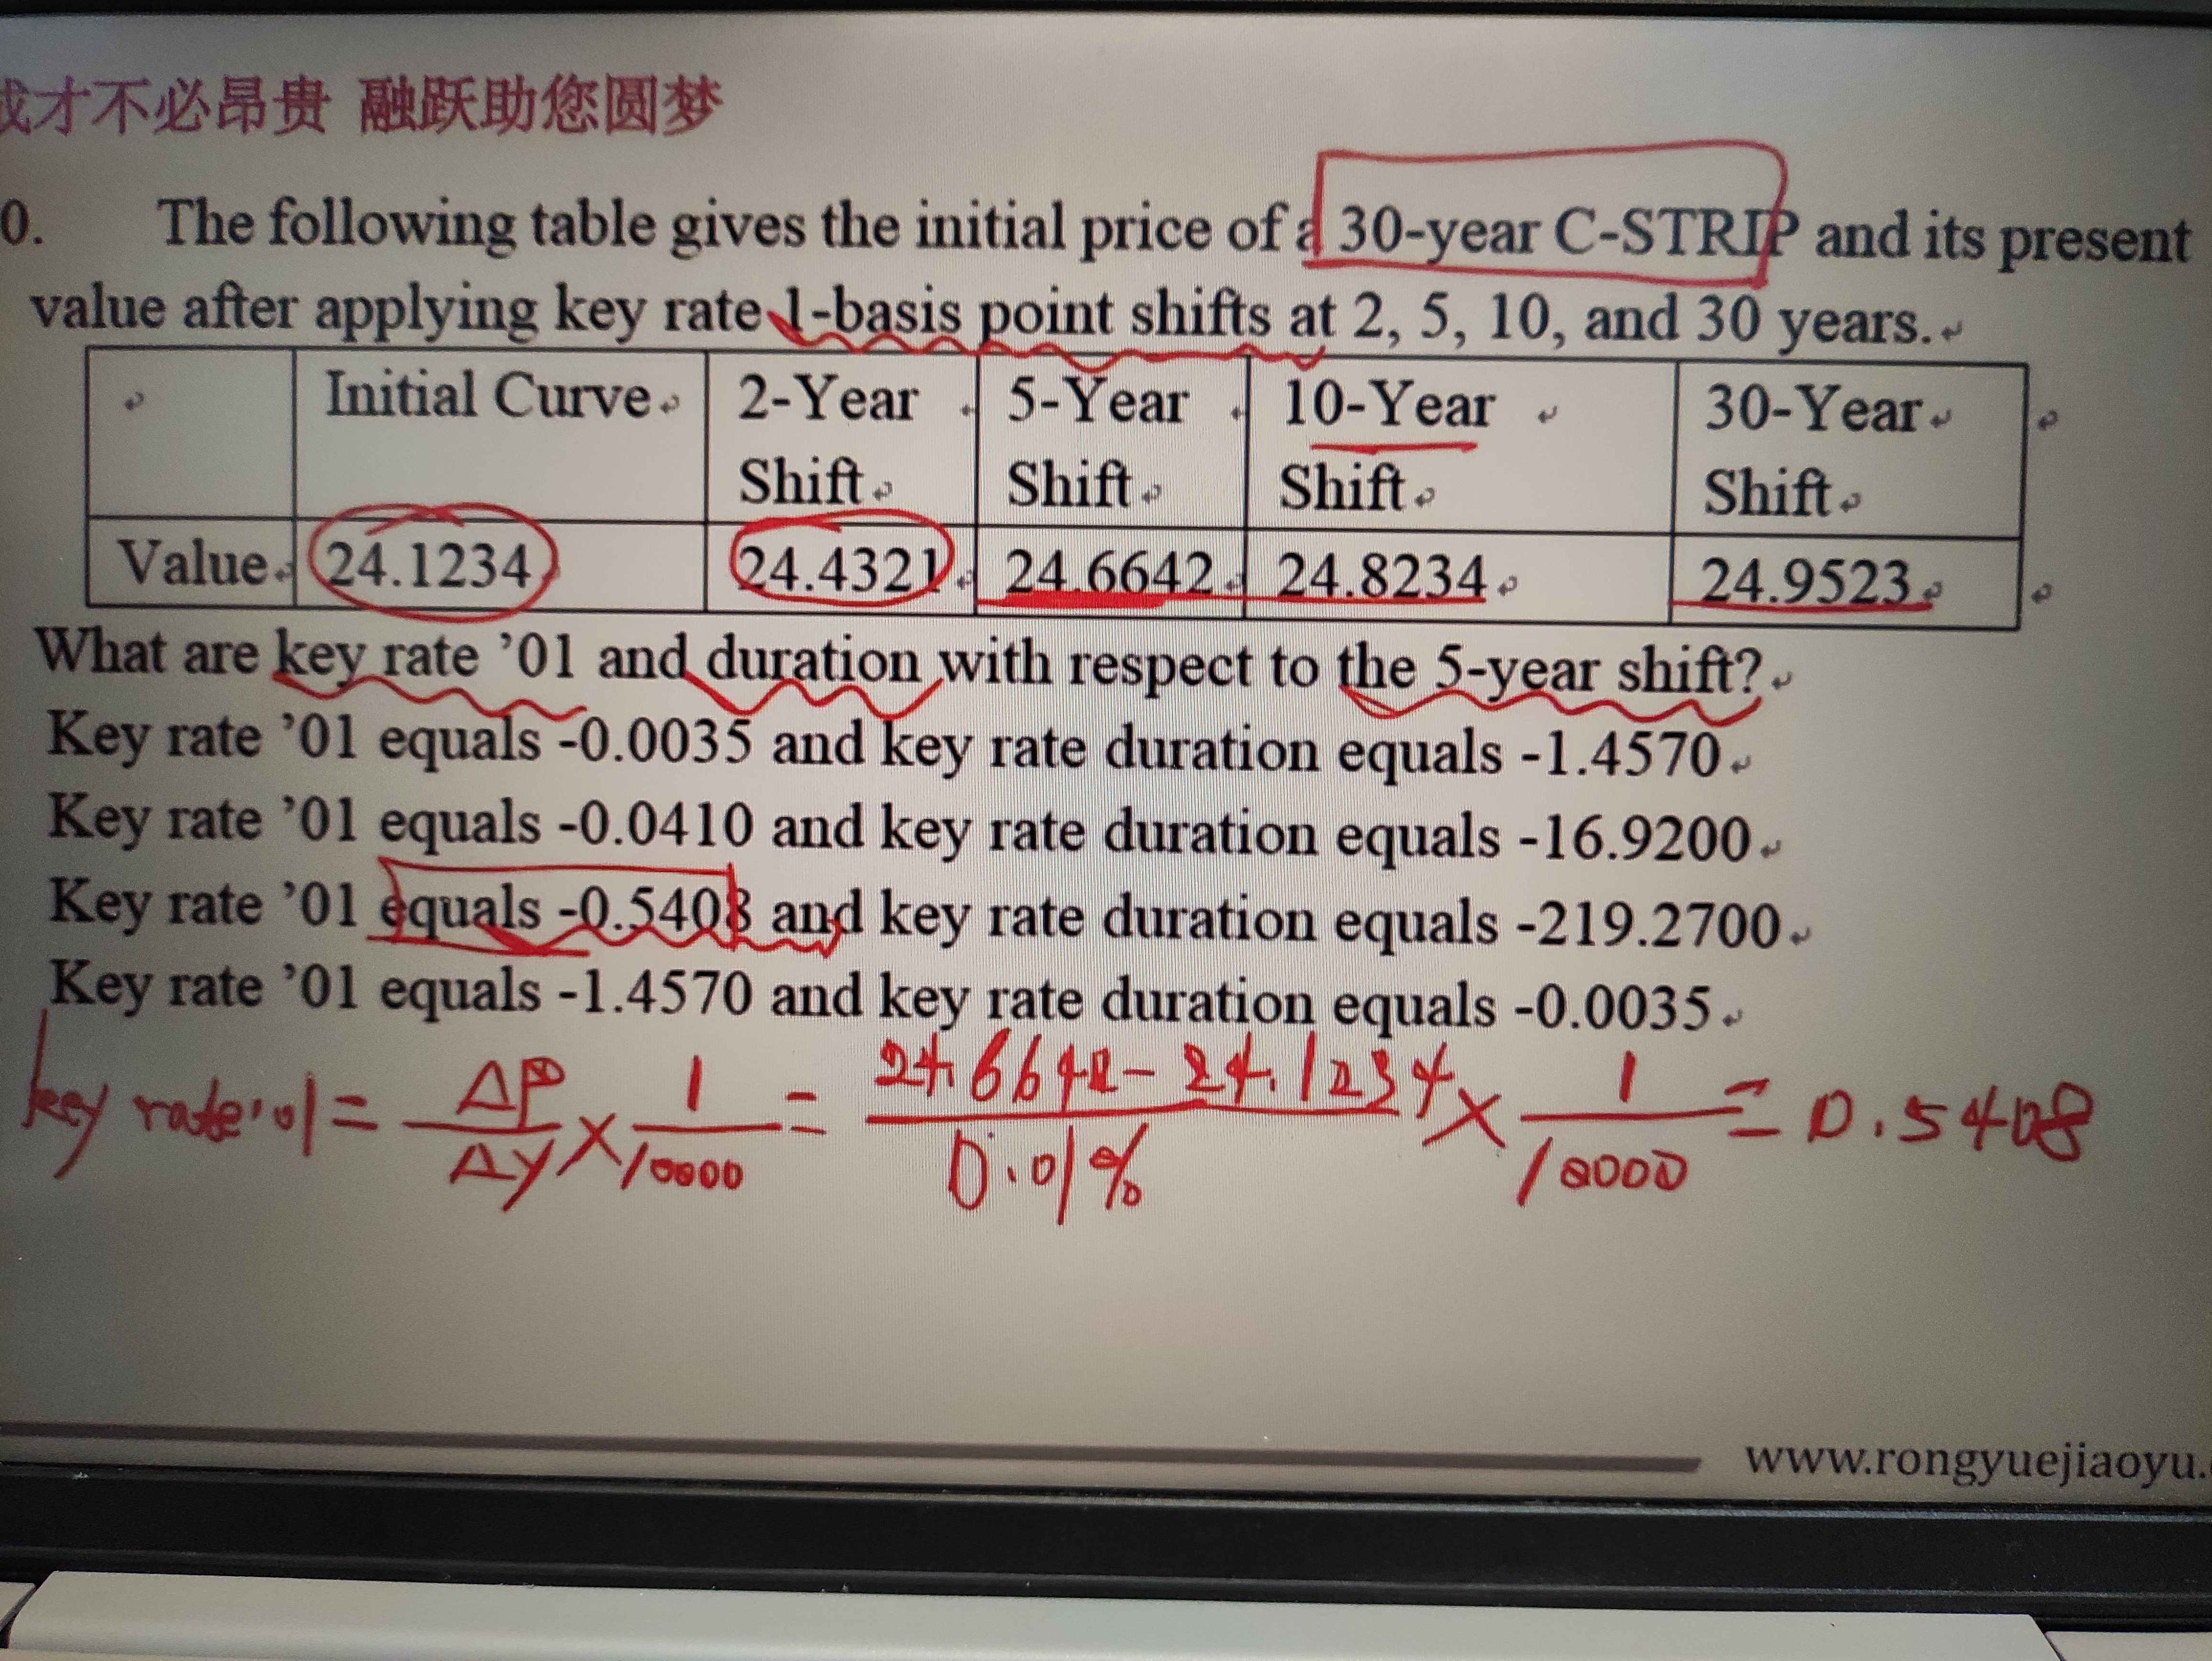 才不必昂贵 融跃助您圆梦
0. The following table gives the initial price of a 30-year C-STRIP and its present
value after applying key rate 1-basis point shifts at 2, 5, 10, and 30 years.
Initial Curve 2-Year Shift 5-Year Shift 10-Year Shift 30-Year Shift
Value 24.1234 24.4321 24.6642 24.8234 24.9523
What are key rate ’01 and duration with respect to the 5-year shift?
Key rate ’01 equals -0.0035 and key rate duration equals -1.4570
Key rate ’01 equals -0.0410 and key rate duration equals -16.9200
Key rate ’01 equals -0.5408 and key rate duration equals -219.2700
Key rate ’01 equals -1.4570 and key rate duration equals -0.0035
key rate'01 = ΔP/Δy × 1/10000 = 24.6642 - 24.1234/0.01% × 1/10000 = 0.5408
www.rongyuejiaoyu.